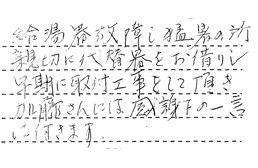 給湯器故障し猛暑の折
親切に代替器をお借りし
早期に取付工事をして頂き
加藤さんには感謝の一言
に付きます。